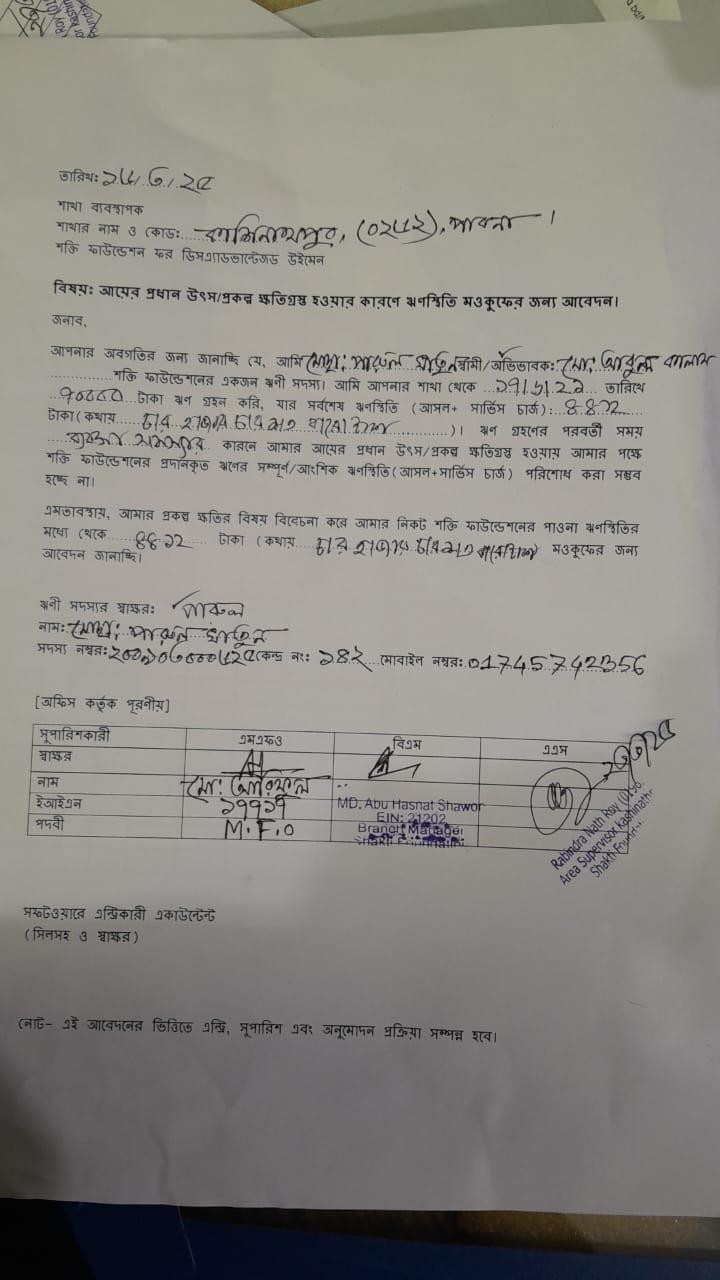 শাখা ব্যবস্থাপক
শাখার নাম ও কোড: কাশিনাথপুর, (০২৫২), পাবনা।
শক্তি ফাউন্ডেশন ফর ডিসএ্যাডভান্টেজড উইমেন
বিষয়: আয়ের প্রধান উৎস/প্রকল্প ক্ষতিগ্রস্থ হওয়ার কারণে ঋণস্থিতি মওকুফের জন্য আবেদন।
জনাব,
আপনার অবগতির জন্য জানাচ্ছি যে, আমি মোছা: পারুল খাতুন স্বামী/অভিভাবক: মো: আবুল কালাম
শক্তি ফাউন্ডেশনের একজন ঋণী সদস্য। আমি আপনার শাখা থেকে তারিখে
৭০০০০ টাকা ঋণ গ্রহন করি, যার সর্বশেষ ঋণস্থিতি (আসল+ সার্ভিস চার্জ): ৪৪১২
টাকা (কথায় চার হাজার চারশত বারো টাকা)। ঋণ গ্রহণের পরবর্তী সময়
কারনে আমার আয়ের প্রধান উৎস/প্রকল্প ক্ষতিগ্রস্থ হওয়ায় আমার পক্ষে
শক্তি ফাউন্ডেশনের প্রদানকৃত ঋণের সম্পূর্ণ/আংশিক ঋণস্থিতি (আসল+সার্ভিস চার্জ) পরিশোধ করা সম্ভব
হচ্ছে না।
এমতাবস্থায়, আমার প্রকল্প ক্ষতির বিষয় বিবেচনা করে আমার নিকট শক্তি ফাউন্ডেশনের পাওনা ঋণস্থিতির
মধ্যে থেকে ৪৪১২ টাকা (কথায় চার হাজার চারশত বারো টাকা) মওকুফের জন্য
আবেদন জানাচ্ছি।
ঋণী সদস্যের স্বাক্ষর: পারুল
নাম: মোছা: পারুল খাতুন
সদস্য নম্বর: কেন্দ্র নং: ১৪২ মোবাইল নম্বর: 01745742356
[অফিস কর্তৃক পূরণীয়]
সুপারিশকারী এমএফও বিএম এএস
স্বাক্ষর
নাম মো: আরিফুল MD. Abu Hasnat Shawor
ইআইএন ১৭৭১৭ EIN: 21202
পদবী M.F.O Branch Manager
Rabindra Nath Roy
Area Supervisor Kashinath
Shakti Found
সফটওয়ারে এন্ট্রিকারী একাউন্টেন্ট
(সিলসহ ও স্বাক্ষর)
নোট- এই আবেদনের ভিত্তিতে এন্ট্রি, সুপারিশ এবং অনুমোদন প্রক্রিয়া সম্পন্ন হবে।